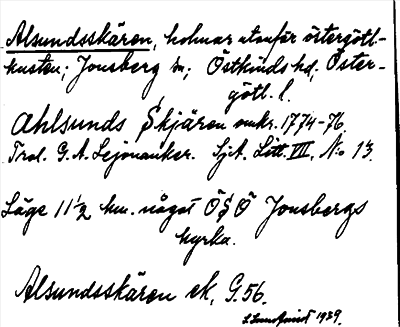 Alsundsskären, holmar utanför östergötl-
kusten; Jonsberg sn; Östkinds hd; Öster-
götl. l.
Ahlsunds Skjären omkr. 1774-76.
Trol. G. A. Lejonanker. SjA. Litt. VII, No 13.
Läge 11 1/2 km. något Ö S Ö Jonsbergs
kyrka.
Alsundsskären ek, G. 56.
1939.